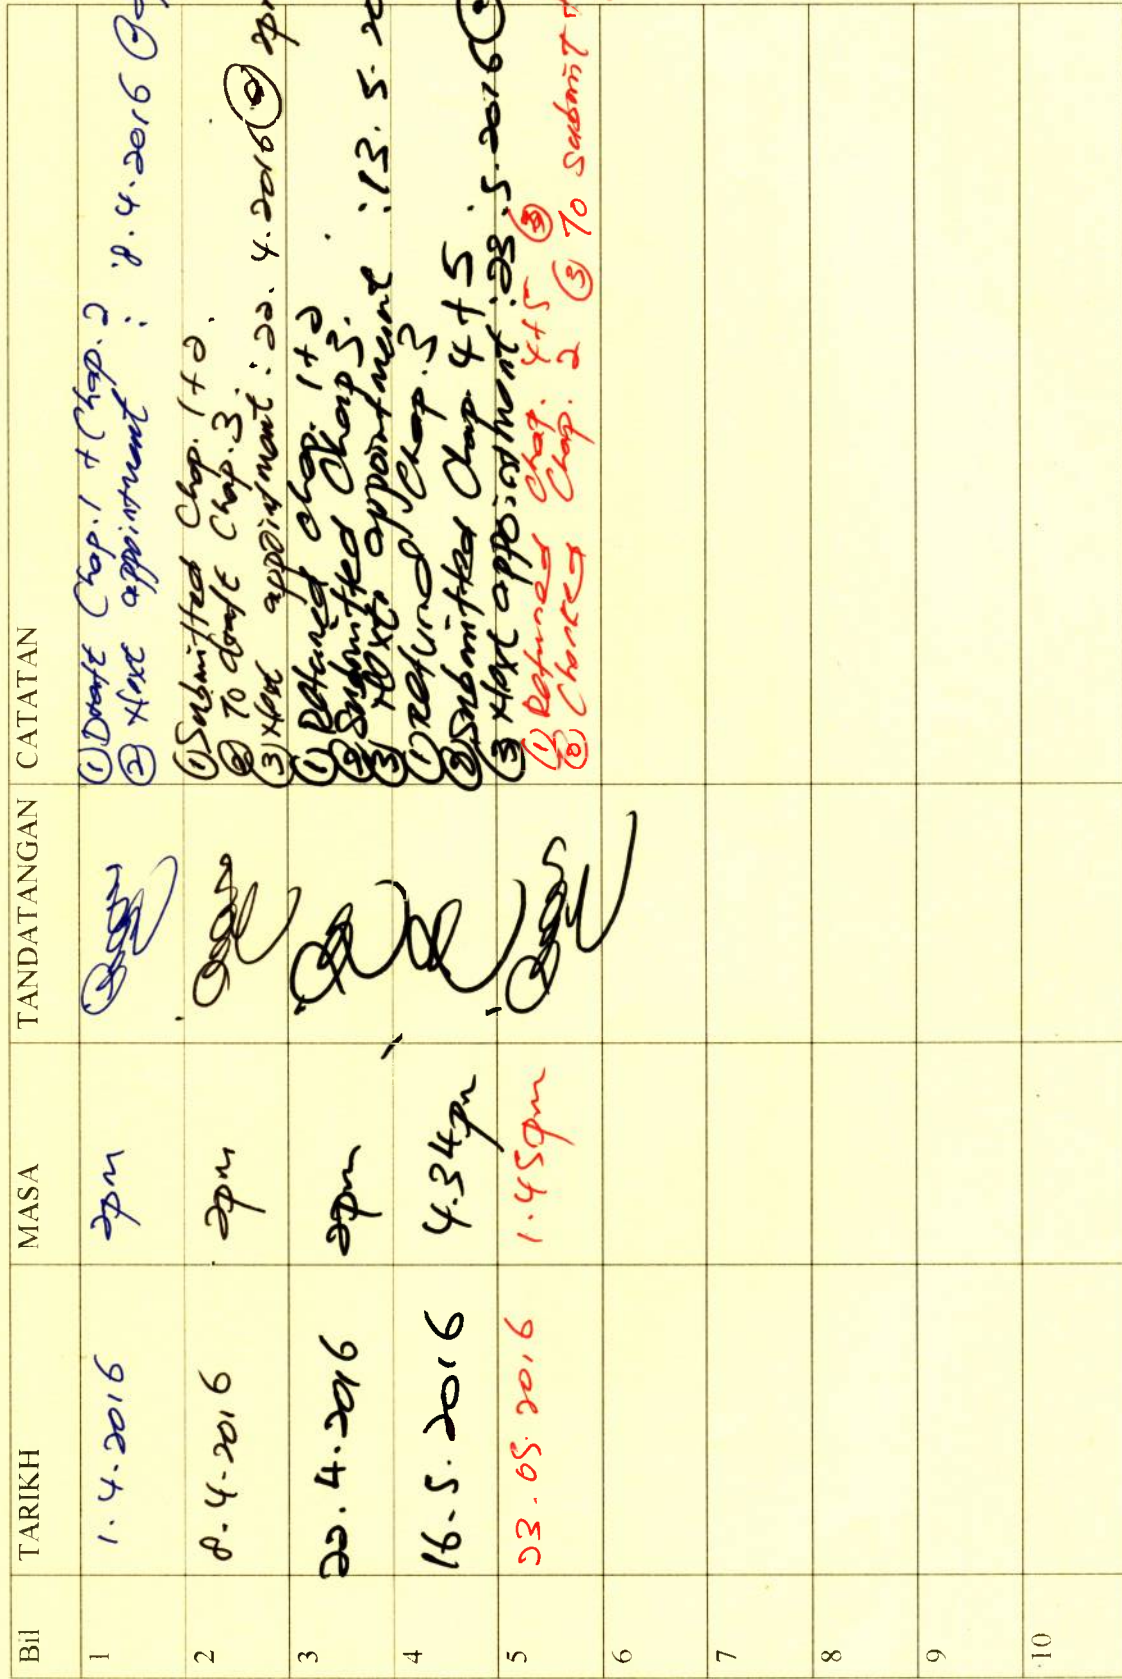 Bil TARIKH MASA TANDATANGAN CATATAN
1 1.4.2016 2pm ① Draft Chap.1 + Chap.2
② Next appointment : 8.4.2016 @
2 8.4.2016 2pm ① Submitted Chap. 1+2.
② To draft Chap.3.
③ Next appointment : 22.4.2016 @ 2pm
3 22.4.2016 2pm ① Returned chap. 1+2
② Submitted Chap 3.
③ Next appointment : 13.5.20
4 16.5.2016 4.34pm ① Returned Chap.3
② Submitted Chap 4+5
③ Next appointment : 23.5.2016 @
5 23.05.2016 1.45pm ① Returned Chap. 4+5 ③
② Checked Chap. 2 ③ To submit
6
7
8
9
10